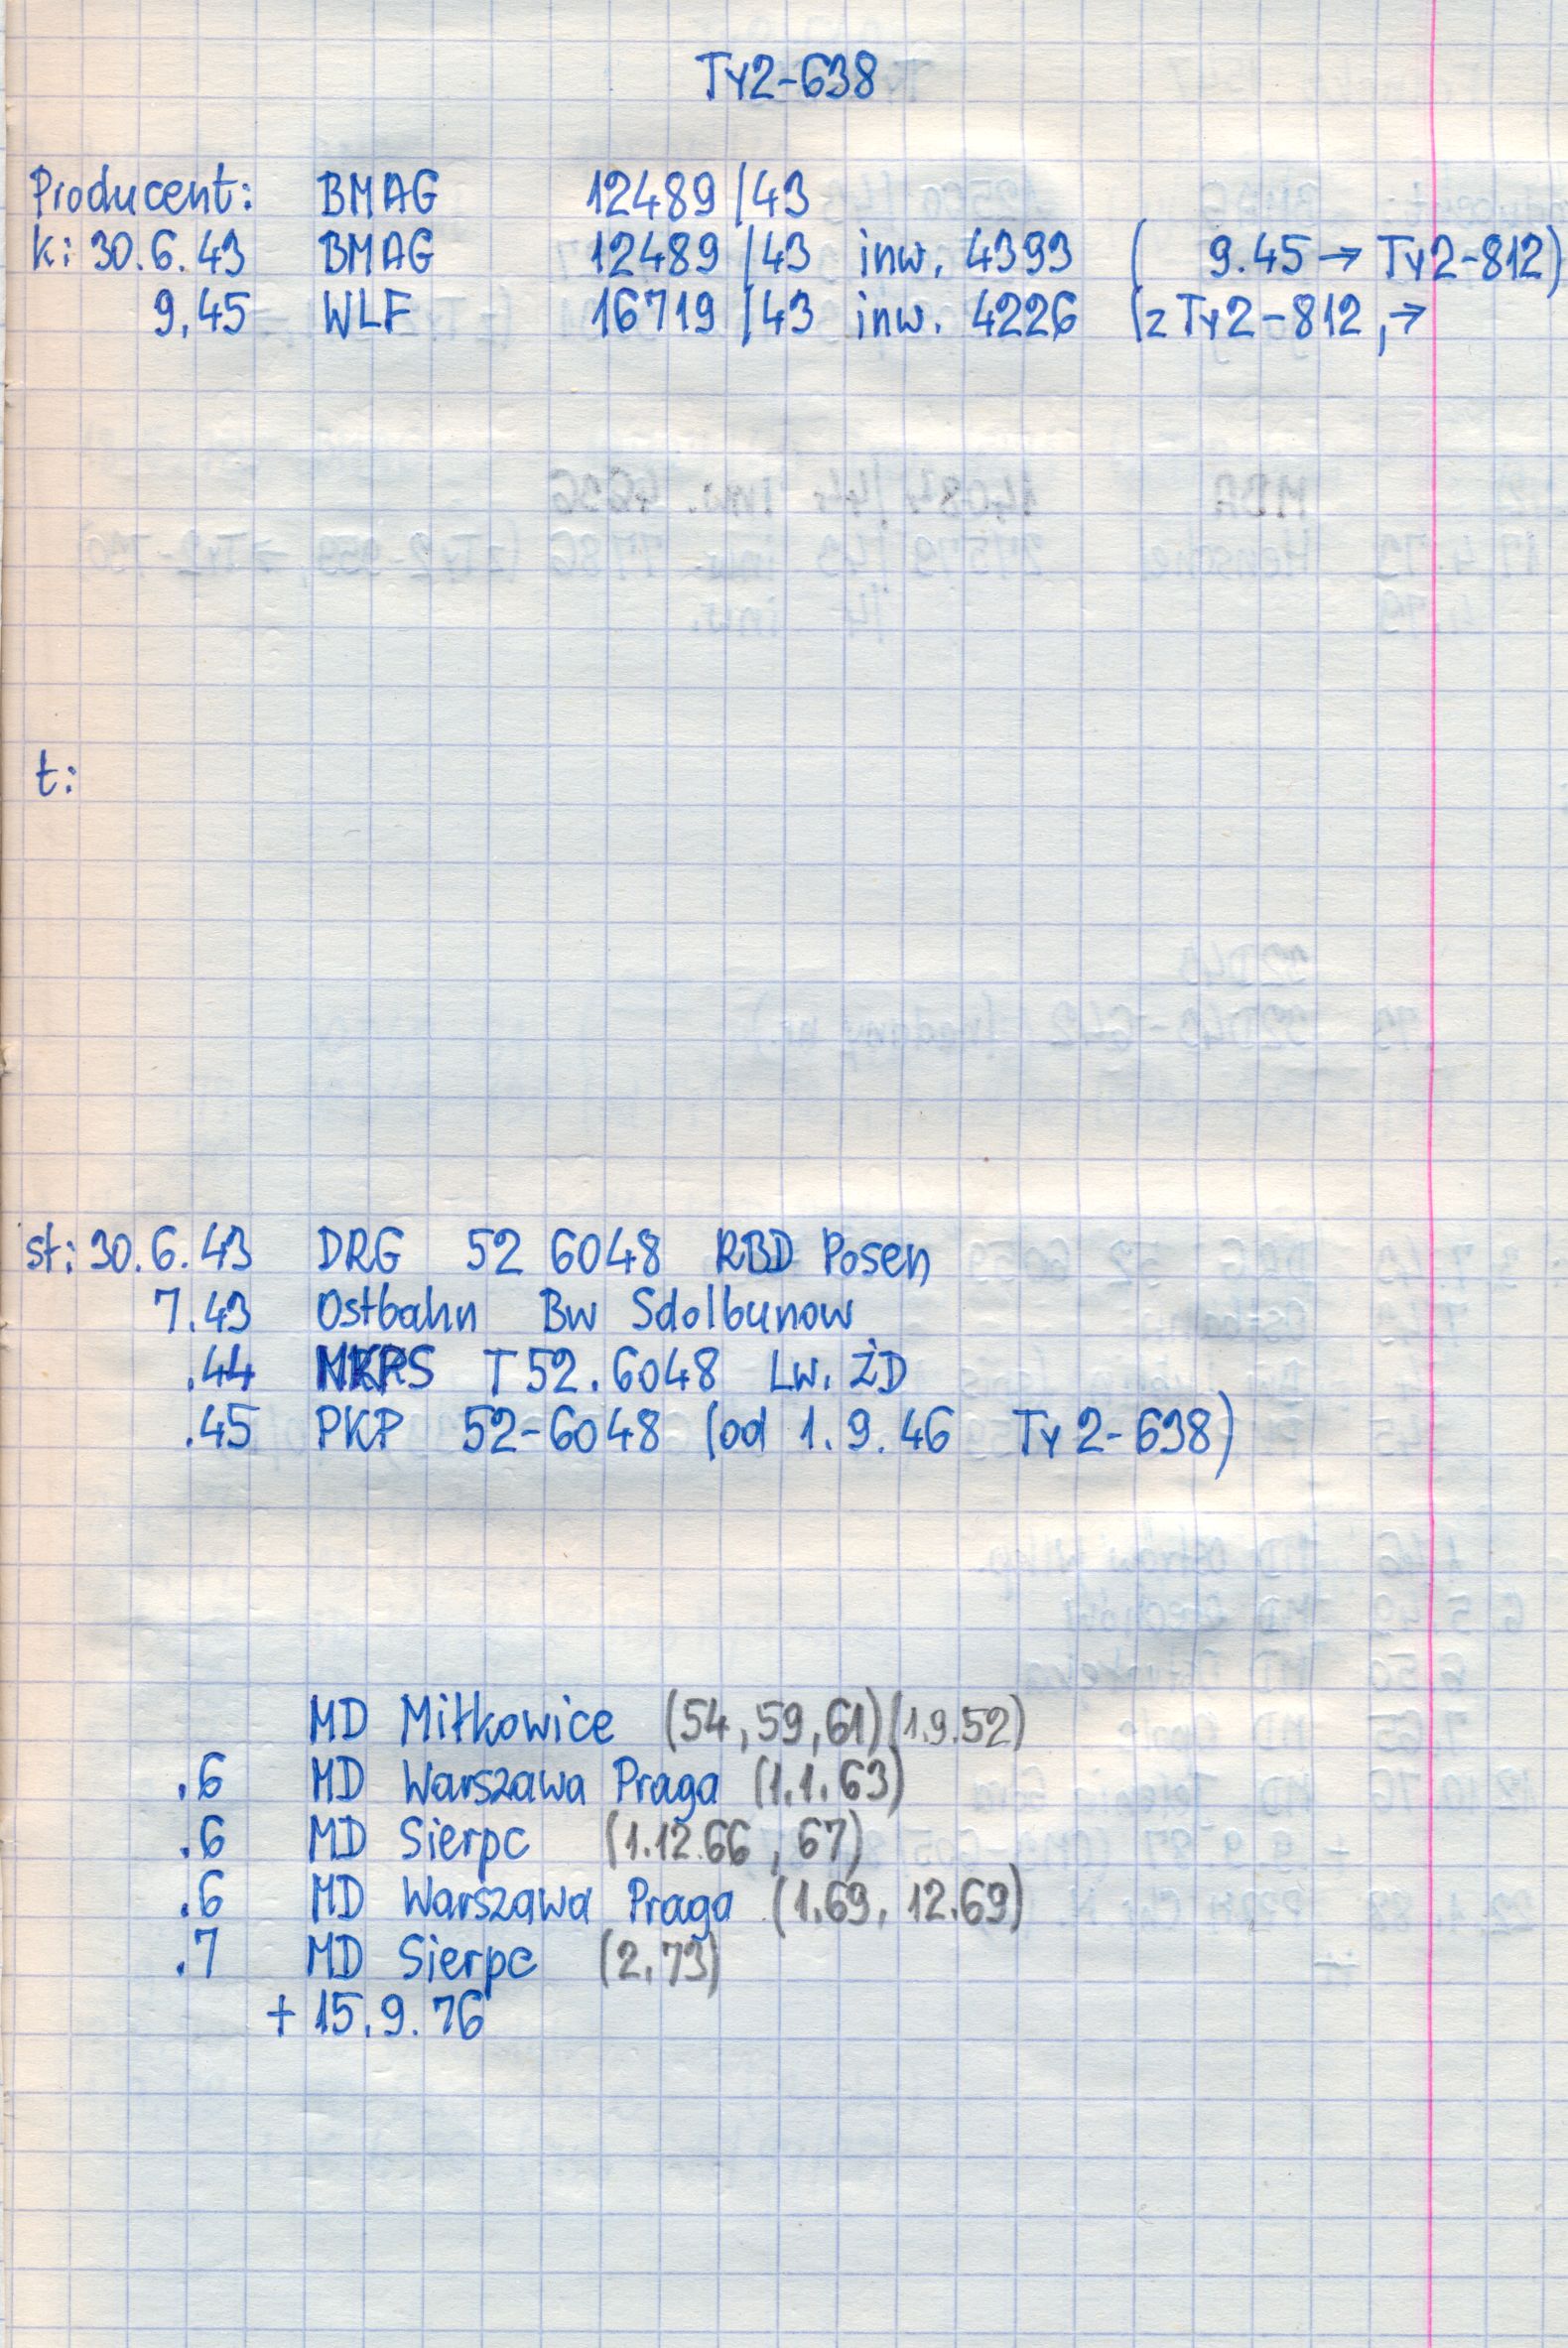 Ty2-638
Producent: BMAG 12489/43
k: 30.6.43 BMAG 12489/43 inw. 4393 ( 9.45 → Ty2-812)
9.45 WLF 16719/43 inw. 4226 (z Ty2-812, →
t:
st: 30.6.43 DRG 52 6048 RBD Posen
7.43 Ostbahn Bw Sdolbunow
.44 NKPS T52.6048 Lw. ŻD
.45 PKP 52-6048 (od 1.9.46 Ty2-638)
MD Miłkowice (54, 59, 61) (1.9.52)
.6 MD Warszawa Praga (1.1.63)
.6 MD Sierpc (1.12.66, 67)
.6 MD Warszawa Praga (1.69, 12.69)
.7 MD Sierpc (2.73)
+ 15.9.76